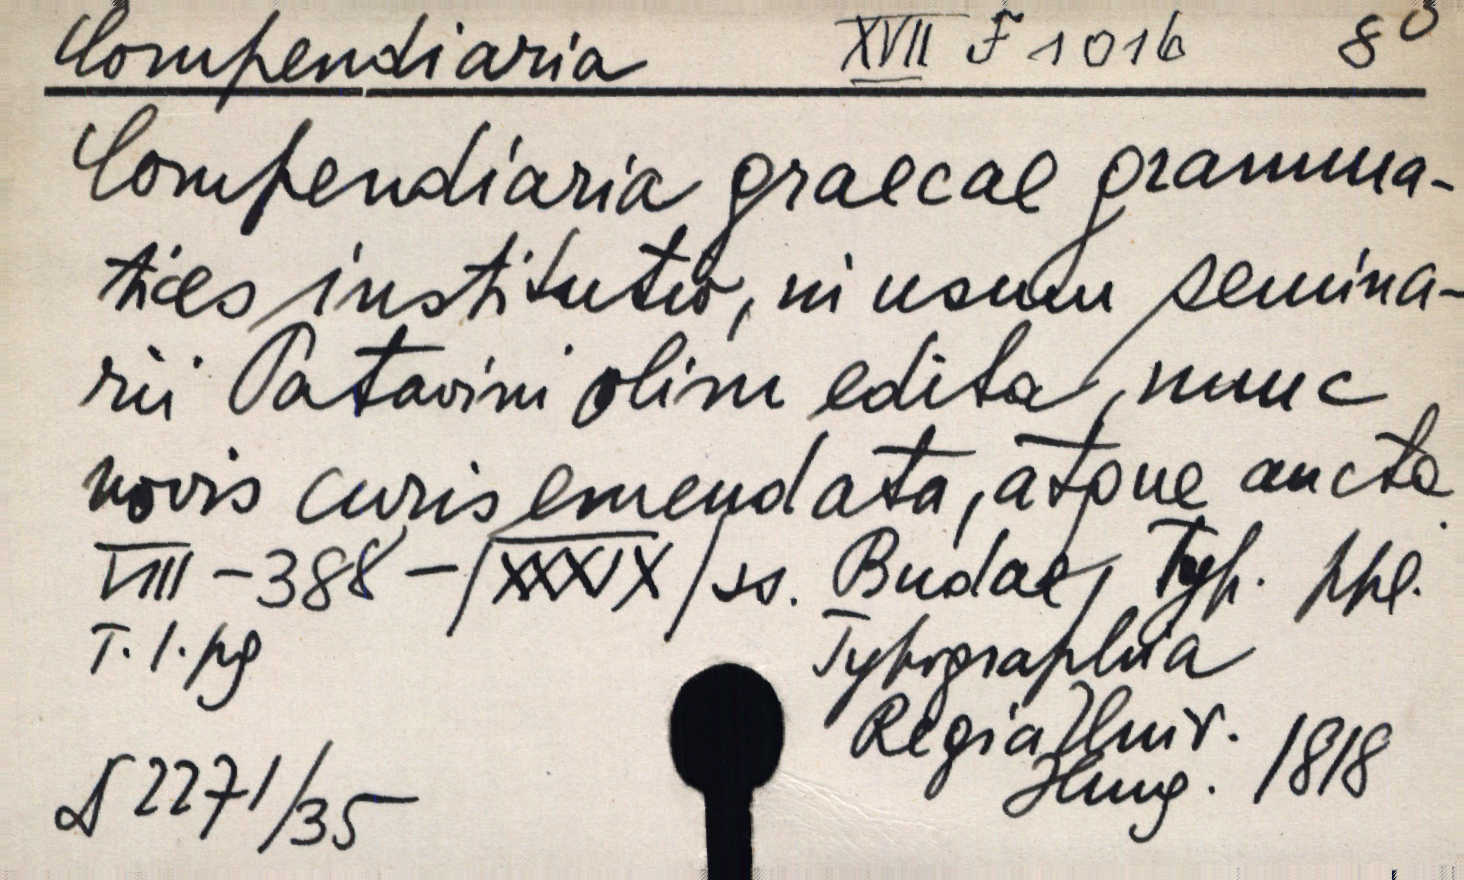 Compendiaria XVII F 1016 8°
Compendiaria graecae gramma-
tices institutio, in usum semina-
rii Patavini olim edita, nunc
novis curis emendata, atque aucta.
VIII – 388 – /XXXIX/ ss. Budae, Typ. ppl.
T. 1. pg Typographia
Regia Univ.
Hung. 1818
2271/35